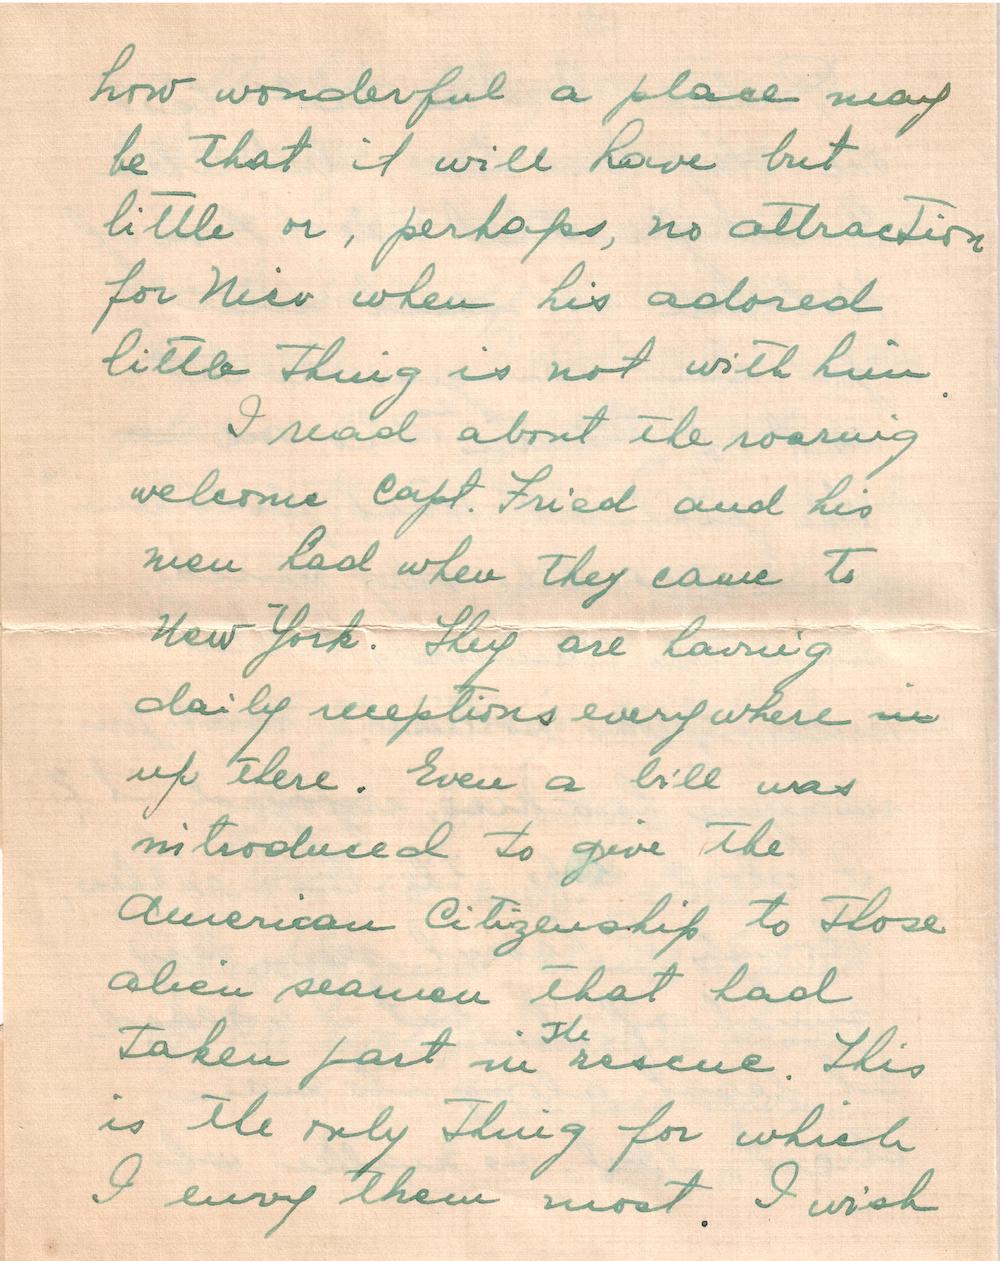 how wonderful a place may
be that it will have but
little or, perhaps, no attraction
for Nico when his adored
little Thing is not with him.
I read about the roaring
welcome Capt. Fried and his
men had when they came to
New York. They are having
daily receptions everywhere in
up there. Even a bill was
introduced to give the
American Citizenship to those
alien seamen that had
taken part in the rescue. This
is the only Thing for which
I envy them most. I wish